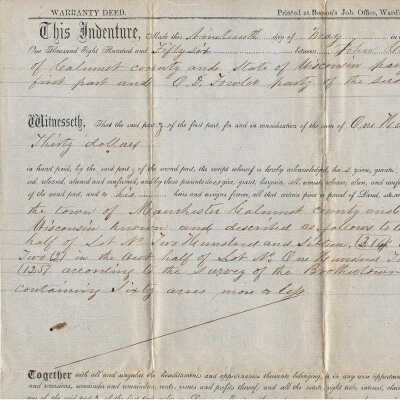 WARRANTY DEED. Printed at Beeson's Job Office, Ward
This Indenture, Made this Nineteenth day of May in
One Thousand Eight Hundred and Fifty Six between John
of Calumet county and State of Wisconsin par
first part and party of the sec
Witnesseth, That the said part y of the first part, for and in consideration of the sum of One Hu
Thirty dollars
in hand paid, by the said part y of the second part, the receipt whereof is hereby acknowledged, ha s given, grante
ed, released, aliened and confirmed, and by these presents do es give, grant, bargain, sell, remise, release, alien, and confir
of the second part, and to his heirs and assigns forever, all that certain piece or parcel of Land, situate
the town of Manchester Calumet county and
Wisconsin known and described as follows to
half of Lot No. Two Hundred and Sixteen (216
Two (2) in the West half of Lot No. One Hundred
according to the survey of the Brothertown
containing Sixty acres more or less
Together with all and singular the hereditaments and appurtenances thereunto belonging, or in any wise appertain
and reversions, remainder and remainders, rents, issues and profits thereof; and all the estate, right, title, interest, claim